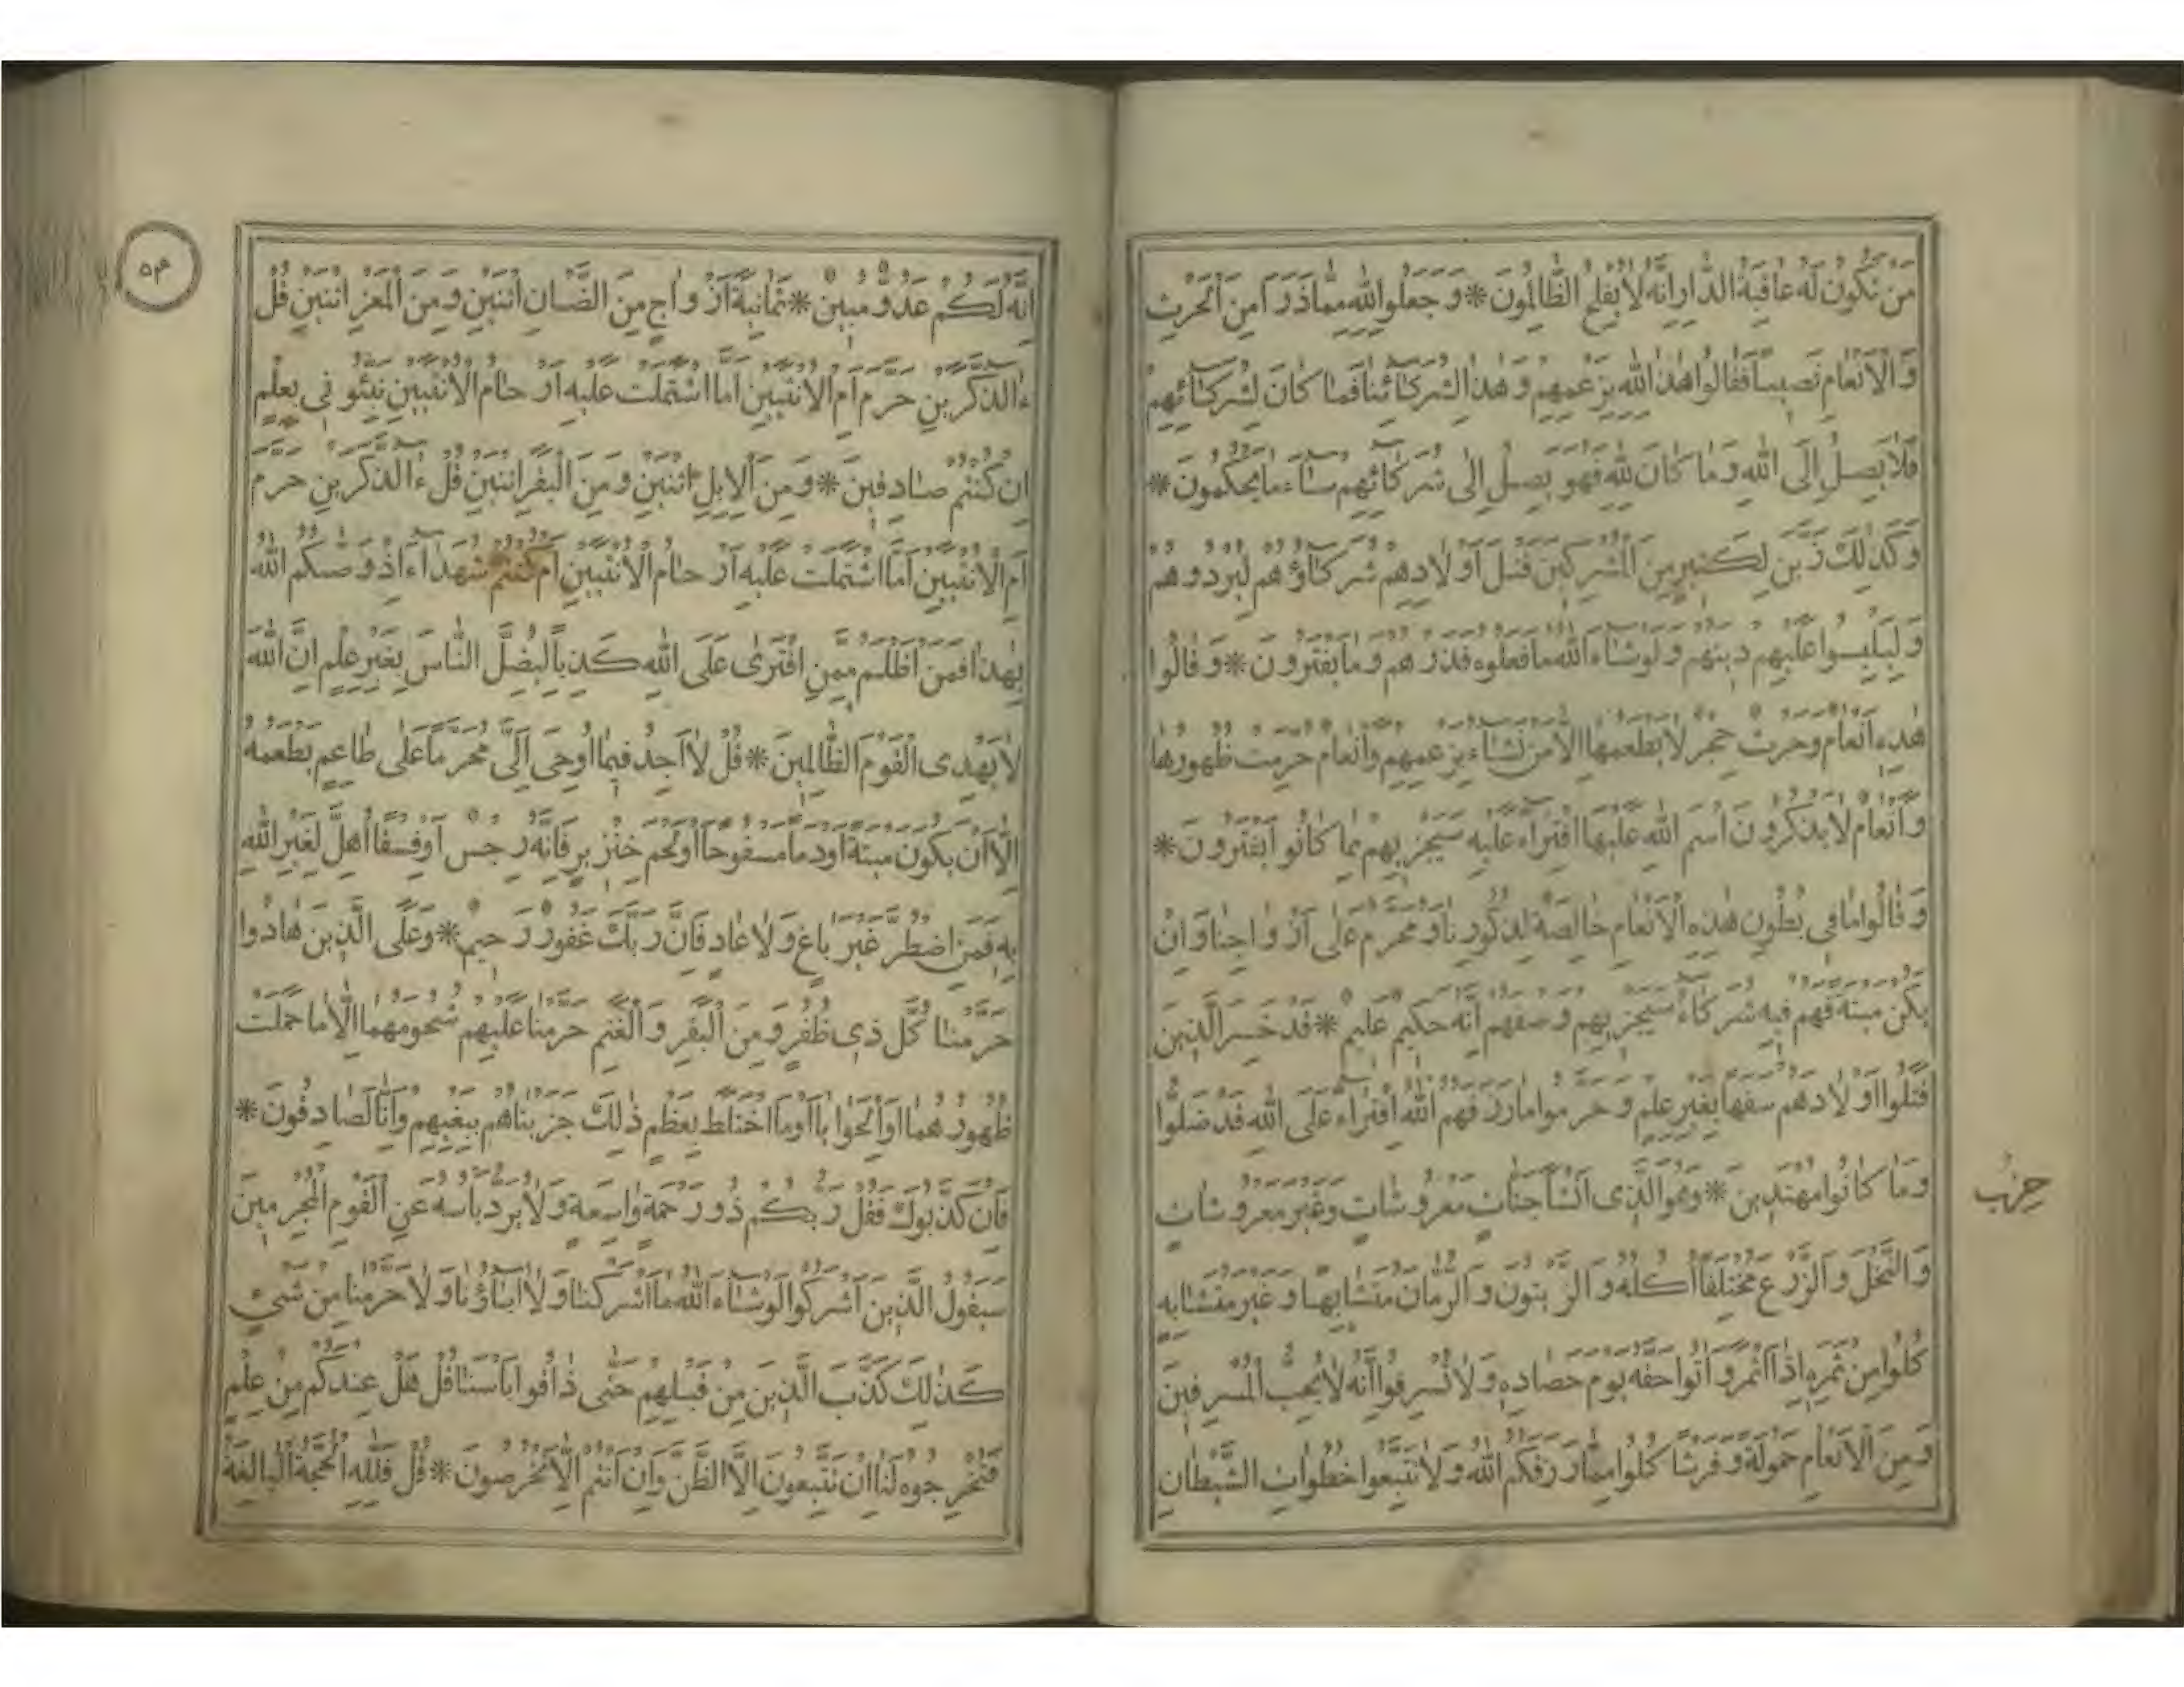 مَنْ تَكُونُ لَهُ عَاقِبَةُ الدَّارِ اِنَّهُ لَا يُفْلِحُ الظَّالِمُونَ * وَجَعَلُوا لِلّٰهِ مِمَّا ذَرَاَ مِنَ الْحَرْثِ
وَالْاَنْعَامِ نَصِيبًا فَقَالُوا هٰذَا لِلّٰهِ بِزَعْمِهِمْ وَهٰذَا لِشُرَكَائِنَا فَمَا كَانَ لِشُرَكَائِهِمْ
فَلَا يَصِلُ اِلَى اللّٰهِ وَمَا كَانَ لِلّٰهِ فَهُوَ يَصِلُ اِلٰى شُرَكَائِهِمْ سَاءَ مَا يَحْكُمُونَ *
وَكَذٰلِكَ زَيَّنَ لِكَثِيرٍ مِنَ الْمُشْرِكِينَ قَتْلَ اَوْلَادِهِمْ شُرَكَاؤُهُمْ لِيُرْدُوهُمْ
وَلِيَلْبِسُوا عَلَيْهِمْ دِينَهُمْ وَلَوْ شَاءَ اللّٰهُ مَا فَعَلُوهُ فَذَرْهُمْ وَمَا يَفْتَرُونَ * وَقَالُوا
هٰذِهِ اَنْعَامٌ وَحَرْثٌ حِجْرٌ لَا يَطْعَمُهَا اِلَّا مَنْ نَشَاءُ بِزَعْمِهِمْ وَاَنْعَامٌ حُرِّمَتْ ظُهُورُهَا
وَاَنْعَامٌ لَا يَذْكُرُونَ اسْمَ اللّٰهِ عَلَيْهَا افْتِرَاءً عَلَيْهِ سَيَجْزِيهِمْ بِمَا كَانُوا يَفْتَرُونَ *
وَقَالُوا مَا فِي بُطُونِ هٰذِهِ الْاَنْعَامِ خَالِصَةٌ لِذُكُورِنَا وَمُحَرَّمٌ عَلٰى اَزْوَاجِنَا وَاِنْ
يَكُنْ مَيْتَةً فَهُمْ فِيهِ شُرَكَاءُ سَيَجْزِيهِمْ وَصْفَهُمْ اِنَّهُ حَكِيمٌ عَلِيمٌ * قَدْ خَسِرَ الَّذِينَ
قَتَلُوا اَوْلَادَهُمْ سَفَهًا بِغَيْرِ عِلْمٍ وَحَرَّمُوا مَا رَزَقَهُمُ اللّٰهُ افْتِرَاءً عَلَى اللّٰهِ قَدْ ضَلُّوا
وَمَا كَانُوا مُهْتَدِينَ * وَهُوَ الَّذِى اَنْشَاَ جَنَّاتٍ مَعْرُوشَاتٍ وَغَيْرَ مَعْرُوشَاتٍ
حزب
وَالنَّخْلَ وَالزَّرْعَ مُخْتَلِفًا اُكُلُهُ وَالزَّيْتُونَ وَالرُّمَّانَ مُتَشَابِهًا وَغَيْرَ مُتَشَابِهٍ
كُلُوا مِنْ ثَمَرِهِ اِذَا اَثْمَرَ وَاٰتُوا حَقَّهُ يَوْمَ حَصَادِهِ وَلَا تُسْرِفُوا اِنَّهُ لَا يُحِبُّ الْمُسْرِفِينَ
وَمِنَ الْاَنْعَامِ حَمُولَةً وَفَرْشًا كُلُوا مِمَّا رَزَقَكُمُ اللّٰهُ وَلَا تَتَّبِعُوا خُطُوَاتِ الشَّيْطَانِ
اِنَّهُ لَكُمْ عَدُوٌّ مُبِينٌ * ثَمَانِيَةَ اَزْوَاجٍ مِنَ الضَّاْنِ اثْنَيْنِ وَمِنَ الْمَعْزِ اثْنَيْنِ قُلْ
ءٰالذَّكَرَيْنِ حَرَّمَ اَمِ الْاُنْثَيَيْنِ اَمَّا اشْتَمَلَتْ عَلَيْهِ اَرْحَامُ الْاُنْثَيَيْنِ نَبِّئُونِي بِعِلْمٍ
اِنْ كُنْتُمْ صَادِقِينَ * وَمِنَ الْاِبِلِ اثْنَيْنِ وَمِنَ الْبَقَرِ اثْنَيْنِ قُلْ ءٰالذَّكَرَيْنِ حَرَّمَ
اَمِ الْاُنْثَيَيْنِ اَمَّا اشْتَمَلَتْ عَلَيْهِ اَرْحَامُ الْاُنْثَيَيْنِ اَمْ كُنْتُمْ شُهَدَاءَ اِذْ وَصّٰىكُمُ اللّٰهُ
بِهٰذَا فَمَنْ اَظْلَمُ مِمَّنِ افْتَرٰى عَلَى اللّٰهِ كَذِبًا لِيُضِلَّ النَّاسَ بِغَيْرِ عِلْمٍ اِنَّ اللّٰهَ
لَا يَهْدِى الْقَوْمَ الظَّالِمِينَ * قُلْ لَا اَجِدُ فِيمَا اُوحِيَ اِلَيَّ مُحَرَّمًا عَلٰى طَاعِمٍ يَطْعَمُهُ
اِلَّا اَنْ يَكُونَ مَيْتَةً اَوْ دَمًا مَسْفُوحًا اَوْ لَحْمَ خِنْزِيرٍ فَاِنَّهُ رِجْسٌ اَوْ فِسْقًا اُهِلَّ لِغَيْرِ اللّٰهِ
بِهِ فَمَنِ اضْطُرَّ غَيْرَ بَاغٍ وَلَا عَادٍ فَاِنَّ رَبَّكَ غَفُورٌ رَحِيمٌ * وَعَلَى الَّذِينَ هَادُوا
حَرَّمْنَا كُلَّ ذِي ظُفُرٍ وَمِنَ الْبَقَرِ وَالْغَنَمِ حَرَّمْنَا عَلَيْهِمْ شُحُومَهُمَا اِلَّا مَا حَمَلَتْ
ظُهُورُهُمَا اَوِ الْحَوَايَا اَوْ مَا اخْتَلَطَ بِعَظْمٍ ذٰلِكَ جَزَيْنَاهُمْ بِبَغْيِهِمْ وَاِنَّا لَصَادِقُونَ *
فَاِنْ كَذَّبُوكَ فَقُلْ رَبُّكُمْ ذُو رَحْمَةٍ وَاسِعَةٍ وَلَا يُرَدُّ بَاْسُهُ عَنِ الْقَوْمِ الْمُجْرِمِينَ
سَيَقُولُ الَّذِينَ اَشْرَكُوا لَوْ شَاءَ اللّٰهُ مَا اَشْرَكْنَا وَلَا اٰبَاؤُنَا وَلَا حَرَّمْنَا مِنْ شَيْءٍ
كَذٰلِكَ كَذَّبَ الَّذِينَ مِنْ قَبْلِهِمْ حَتّٰى ذَاقُوا بَاْسَنَا قُلْ هَلْ عِنْدَكُمْ مِنْ عِلْمٍ
فَتُخْرِجُوهُ لَنَا اِنْ تَتَّبِعُونَ اِلَّا الظَّنَّ وَاِنْ اَنْتُمْ اِلَّا تَخْرُصُونَ * قُلْ فَلِلّٰهِ الْحُجَّةُ الْبَالِغَةُ